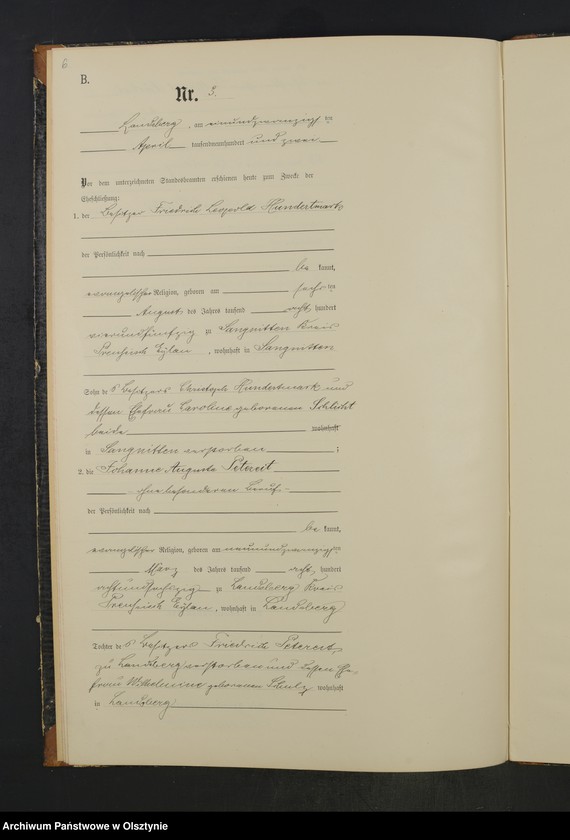 6
B.
Nr. 3.
Landsberg, am einundzwanzigsten
April tausendneunhundert und zwei
Vor dem unterzeichneten Standesbeamten erschienen heute zum Zwecke der
Eheschließung:
1. der Besitzer Friedrich Leopold Hundertmark
der Persönlichkeit nach
be kannt,
evangelischer Religion, geboren am sechsten
August des Jahres tausend acht hundert
vierundfünfzig zu Sangnitten Kreis
Preußisch Eylau, wohnhaft in Sangnitten
Sohn des Besitzers Christoph Hundertmark und
dessen Ehefrau Caroline geborenen Schlicht
beide wohnhaft
in Sangnitten verstorben;
2. die Johanne Auguste Petereit
ohne besonderen Beruf
der Persönlichkeit nach
be kannt,
evangelischer Religion, geboren am neunundzwanzigsten
März des Jahres tausend acht hundert
achtundsechszig zu Landsberg Kreis
Preußisch Eylau, wohnhaft in Landsberg
Tochter des Besitzers Friedrich Petereit
zu Landsberg verstorben und dessen Ehe-
frau Wilhelmine geborenen Schulz wohnhaft
in Landsberg
Archiwum Państwowe w Olsztynie